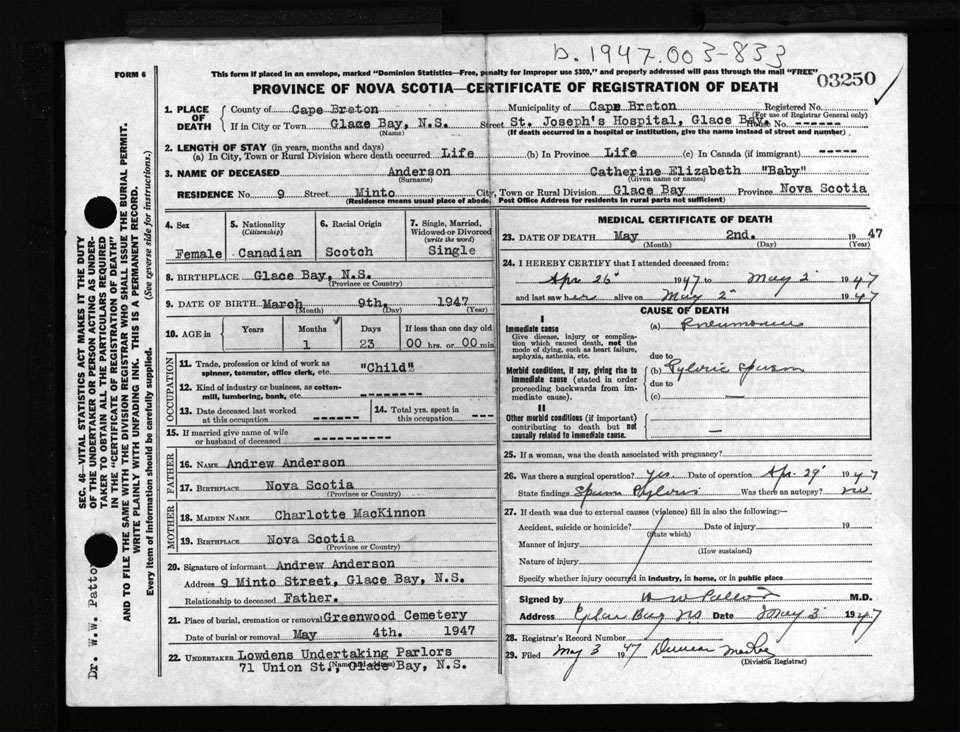 b. 1947-003-833
FORM 6
This form if placed in an envelope, marked "Dominion Statistics—Free, penalty for improper use $300," and properly addressed will pass through the mail "FREE"
03250
PROVINCE OF NOVA SCOTIA—CERTIFICATE OF REGISTRATION OF DEATH
1. PLACE OF DEATH County of Cape Breton Municipality of Cape Breton Registered No.
(For use of Registrar General only)
If in City or Town Glace Bay, N.S. Street St. Joseph's Hospital, Glace Bay. House No. ------
(Name) (If death occurred in a hospital or institution, give the name instead of street and number)
2. LENGTH OF STAY (in years, months and days)
(a) In City, Town or Rural Division where death occurred Life (b) In Province Life (c) In Canada (if immigrant) -----
3. NAME OF DECEASED Anderson Catherine Elizabeth "Baby"
(Surname) (Given name or names)
RESIDENCE No. 9 Street Minto City, Town or Rural Division Glace Bay Province Nova Scotia
(Residence means usual place of abode. Post Office Address for residents in rural parts not sufficient)
4. Sex Female
5. Nationality (Citizenship) Canadian
6. Racial Origin Scotch
7. Single, Married, Widowed or Divorced (write the word) Single
8. BIRTHPLACE Glace Bay, N.S.
(Province or Country)
9. DATE OF BIRTH March 9th, 1947
(Month) (Day) (Year)
10. AGE in Years Months Days If less than one day old
1 23 00 hrs. or 00 min.
OCCUPATION
11. Trade, profession or kind of work as spinner, teamster, office clerk, etc. "Child"
12. Kind of industry or business, as cotton-mill, lumbering, bank, etc. ---------
13. Date deceased last worked at this occupation -------
14. Total yrs. spent in this occupation ---
15. If married give name of wife or husband of deceased -----------
FATHER
16. NAME Andrew Anderson
17. BIRTHPLACE Nova Scotia
(Province or Country)
MOTHER
18. MAIDEN NAME Charlotte MacKinnon
19. BIRTHPLACE Nova Scotia
(Province or Country)
20. Signature of informant Andrew Anderson
Address 9 Minto Street, Glace Bay, N.S.
Relationship to deceased Father.
21. Place of burial, cremation or removal Greenwood Cemetery
Date of burial or removal May 4th. 1947
22. UNDERTAKER Lowdens Undertaking Parlors
71 Union St., Glace Bay, N.S.
(Name and address)
MEDICAL CERTIFICATE OF DEATH
23. DATE OF DEATH May 2nd. 1947
(Month) (Day) (Year)
24. I HEREBY CERTIFY that I attended deceased from:
Apr 26" 1947 to May 2" 1947
and last saw her alive on May 2" 1947
CAUSE OF DEATH
I
Immediate cause
Give disease, injury or complication which caused death, not the mode of dying, such as heart failure, asphyxia, asthenia, etc.
(a) Pneumonia
due to
Morbid conditions, if any, giving rise to immediate cause (stated in order proceeding backwards from immediate cause).
(b) Pyloric Spasm
due to
(c) —
II
Other morbid conditions (if important) contributing to death but not causally related to immediate cause.
—
25. If a woman, was the death associated with pregnancy?
26. Was there a surgical operation? Yes. Date of operation Apr. 29" 1947
State findings Spasm Pylorus Was there an autopsy? no
27. If death was due to external causes (violence) fill in also the following:—
Accident, suicide or homicide? Date of injury 19
(State which)
Manner of injury
(How sustained)
Nature of injury
Specify whether injury occurred in industry, in home, or in public place
Signed by W W Patton M.D.
Address Glace Bay NS Date May 3 1947
28. Registrar's Record Number
29. Filed May 3 1947 Duncan MacRae
(Division Registrar)
SEC. 46—VITAL STATISTICS ACT MAKES IT THE DUTY
OF THE UNDERTAKER OR PERSON ACTING AS UNDER-
TAKER TO OBTAIN ALL THE PARTICULARS REQUIRED
IN THE "CERTIFICATE OF REGISTRATION OF DEATH"
AND TO FILE THE SAME WITH THE DIVISION REGISTRAR WHO SHALL ISSUE THE BURIAL PERMIT.
WRITE PLAINLY WITH UNFADING INK. THIS IS A PERMANENT RECORD.
Every item of information should be carefully supplied. (See reverse side for instructions.)
Dr. W.W. Patton